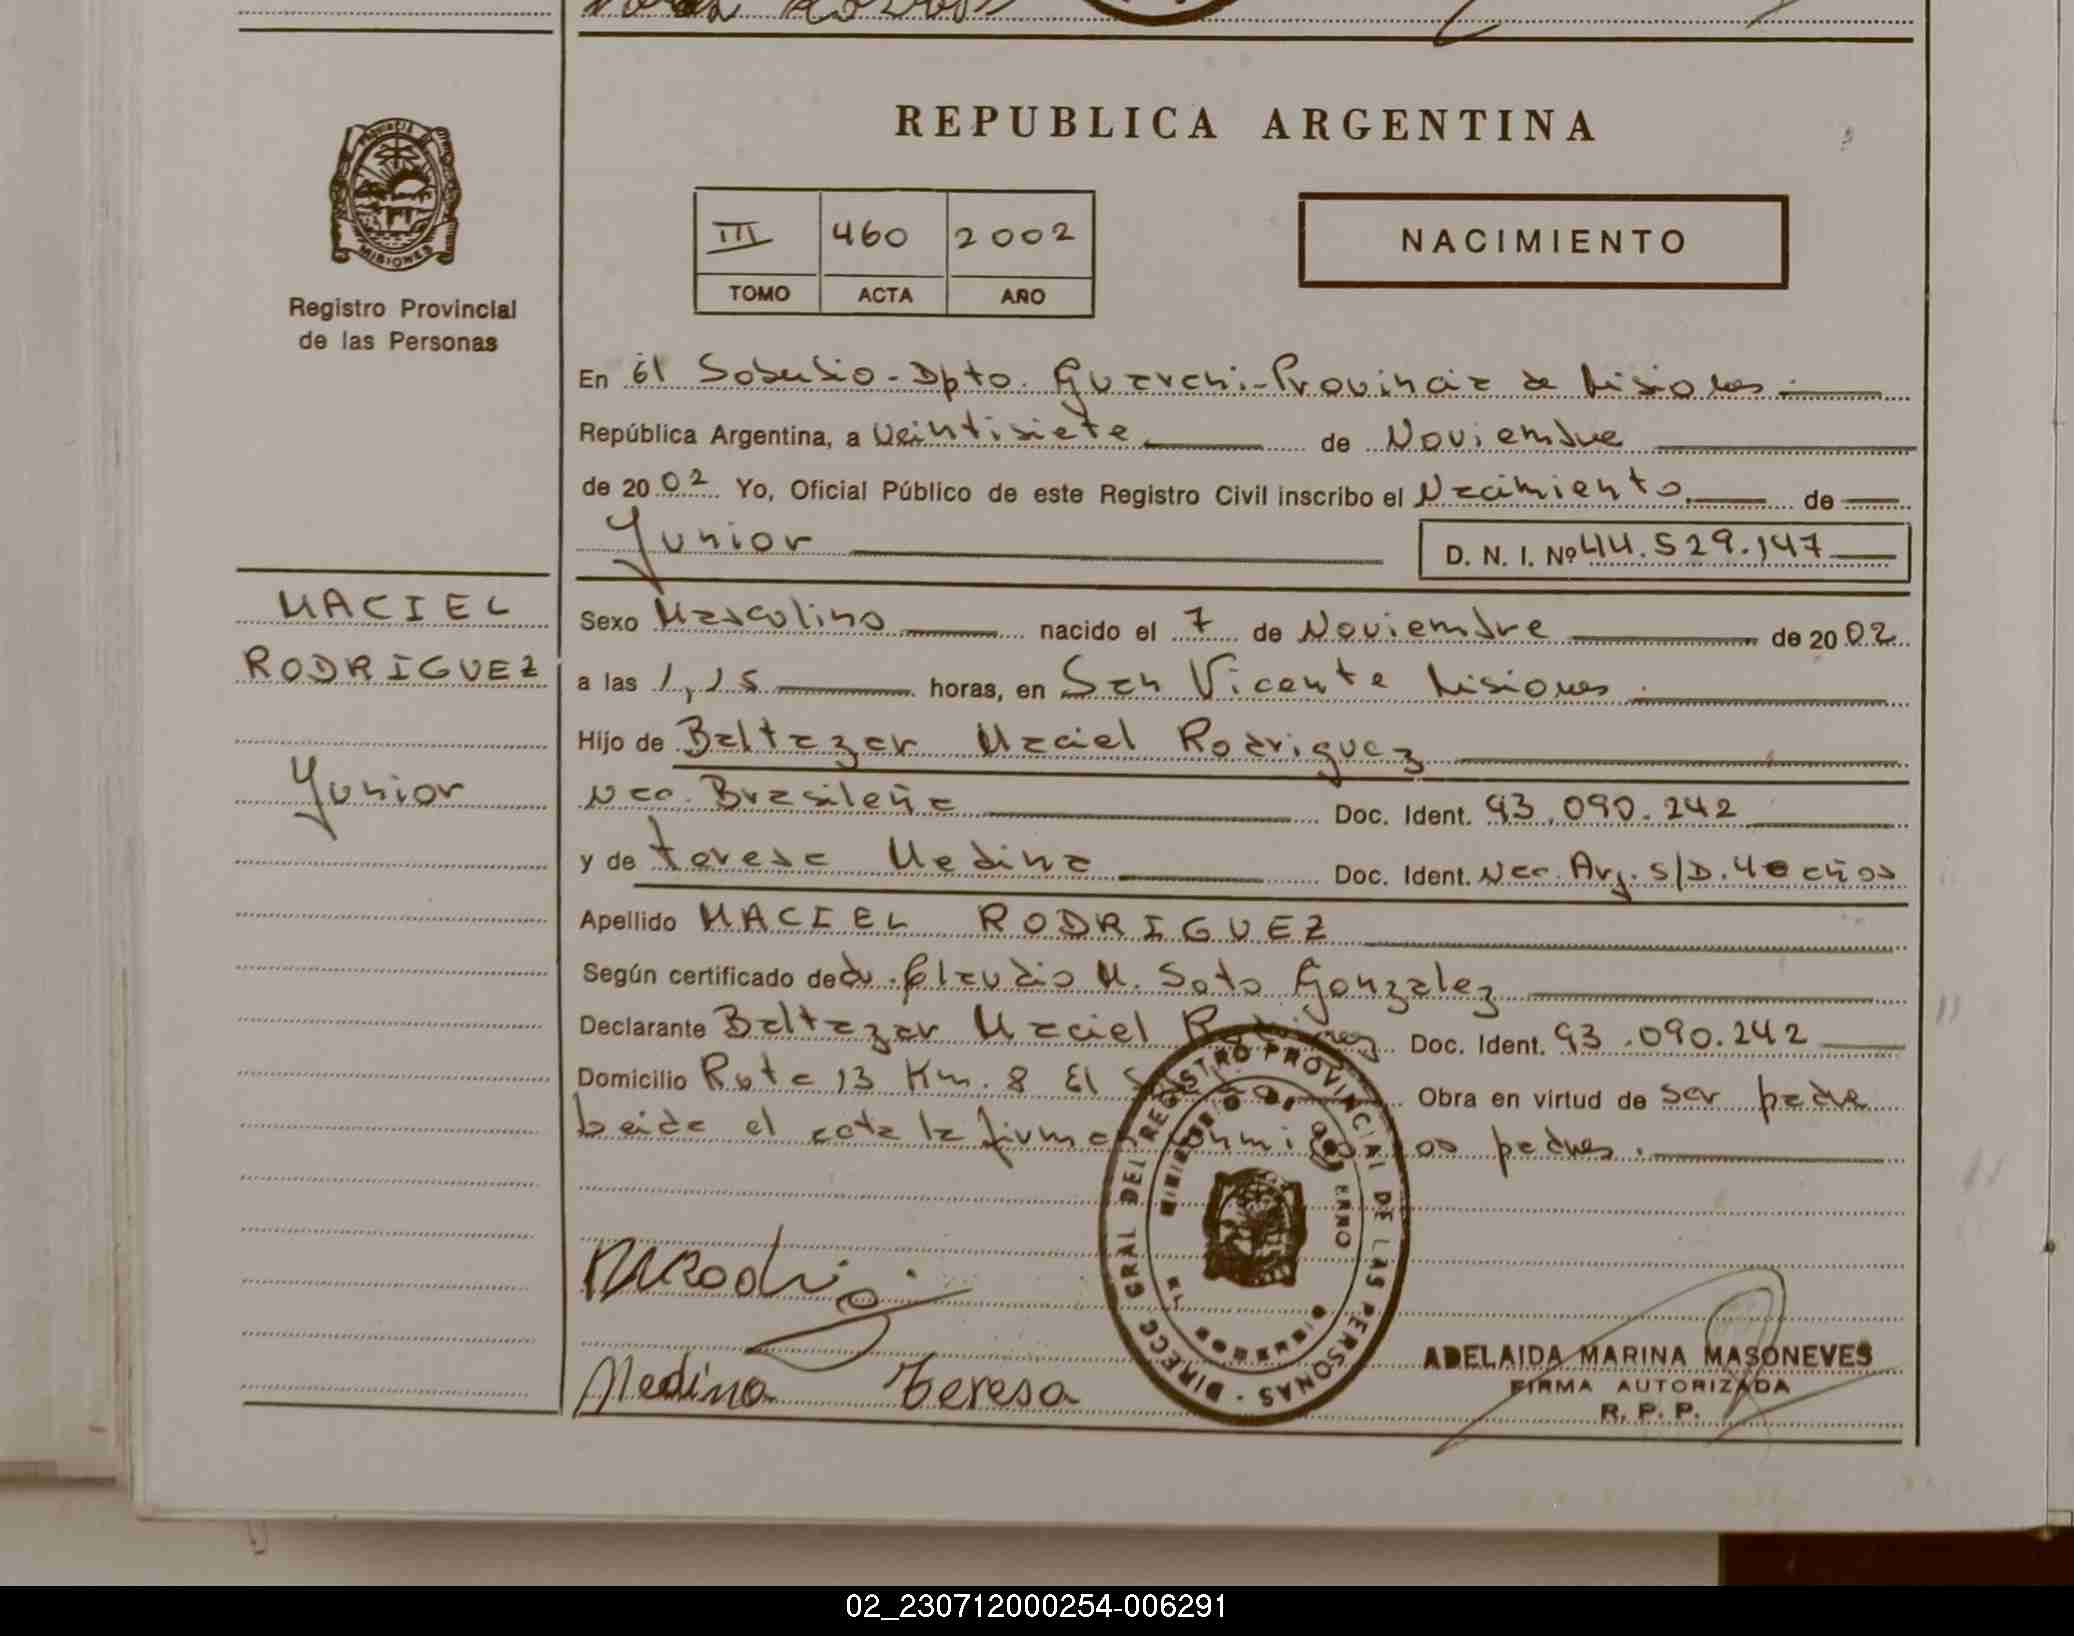 REPUBLICA ARGENTINA
PROVINCIA MISIONES
Registro Provincial
de las Personas
III 460 2002
TOMO ACTA AÑO
NACIMIENTO
En El Soberbio - Dpto. Guarani - Provincia de Misiones.
República Argentina, a Veintisiete de Noviembre
de 2002 Yo, Oficial Público de este Registro Civil inscribo el Nacimiento de
Yunior D. N. I. Nº 44.529.147
MACIEL
RODRIGUEZ
Yunior
Sexo Masculino nacido el 7 de Noviembre de 2002
a las 1,15 horas, en San Vicente Misiones.
Hijo de Baltazar Maciel Rodriguez
Nac. Brasileña Doc. Ident. 93.090.242
y de Teresa Medina Doc. Ident. Nac. Arg. S/D. 40 años
Apellido MACIEL RODRIGUEZ
Según certificado de dr. Claudio M. Soto Gonzalez
Declarante Baltazar Maciel Doc. Ident. 93.090.242
Domicilio Ruta 13 Km. 8 El Obra en virtud de ser padre
Leida el acta la firman padres.
DIRECC GRAL DEL REGISTRO PROVINCIAL DE LAS PERSONAS
Medina Teresa
ADELAIDA MARINA MASONEVES
FIRMA AUTORIZADA
R. P. P.
02_230712000254-006291